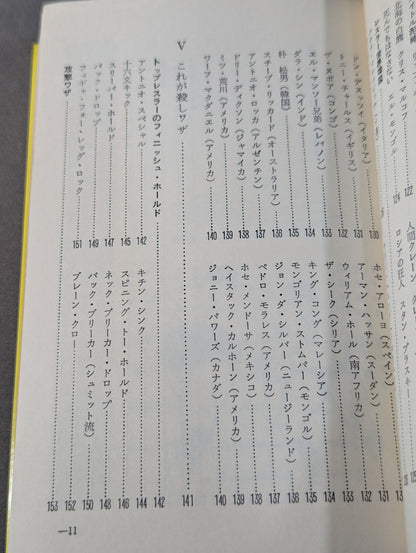 人間クレーン
ロシアの狂人 スタン
死んでもはなさない クリス・マルコフ 122
北海の白熊 エル・モンゴル 124
トニー・チャールス（イギリス） 131
ザ・スポイア（コンゴ） 132
エル・マンソー兄弟（レバノン） 133
ダラ・シン（インド） 134
朴 松男（韓国） 135
スチーブ・リッカード（オーストラリア） 136
アントニオ・ロッカ（アルゼンチン） 137
ドリー・ディクソン（ジャマイカ） 138
ミツ・荒川（アメリカ） 139
ワーフー・マクダニエル（アメリカ） 140
ホセ・アローヨ（スペイン） 131
アーマン・ハッサン（スーダン） 132
ウィリアム・ホール（南アフリカ） 133
ザ・シーク（シリア） 134
キング・コング（マレーシア） 134
モンゴリアン・ストムパー（モンゴル） 135
ジョン・ダ・シルバー（ニュージーランド） 136
ペドロ・モラレス（アメリカ） 137
ホセ・メンドーサ（メキシコ） 138
ヘイスタック・カルホーン（アメリカ） 139
ジョニー・パワーズ（カナダ） 140
V これが殺しワザ 141
トップレスラーのフィニッシュ・ホールド 142
アントニオ・スペシャル 142
十六文キック 145
スリーパー・ホールド 147
バック・ドロップ 149
フィギャ・フォー・レッグ・ロック 151
キチン・シンク 144
スピニング・トー・ホールド 146
ネック・ブリーカー・ドロップ 148
バック・ブリーカー（シュミット流） 150
ブレーン・クロー 152
攻撃ワザ 153
—11